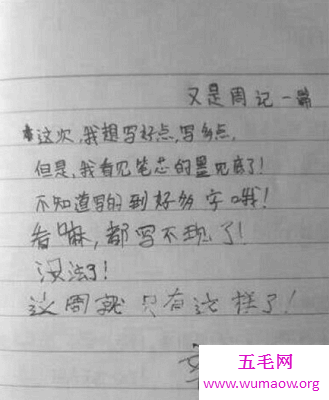 又是周记一篇
这次,我想写好点,写多点,
但是,我看见笔芯的墨见底了!
不知道写的到好多字哦!
看嘛,都写不现了!
没法了!
这周就只有这样了!
五毛网
www.wumaow.org